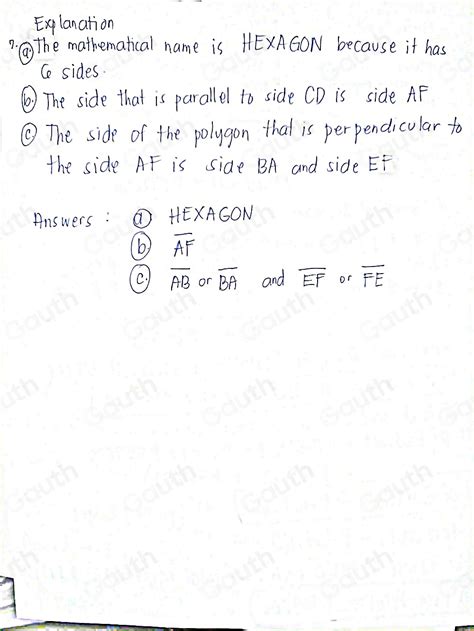 Explanation
7. a. The mathematical name is HEXAGON because it has
6 sides.
b. The side that is parallel to side CD is side AF
c. The side of the polygon that is perpendicular to
the side AF is side BA and side EF
Answers : a HEXAGON
b. AF
c. AB or BA and EF or FE